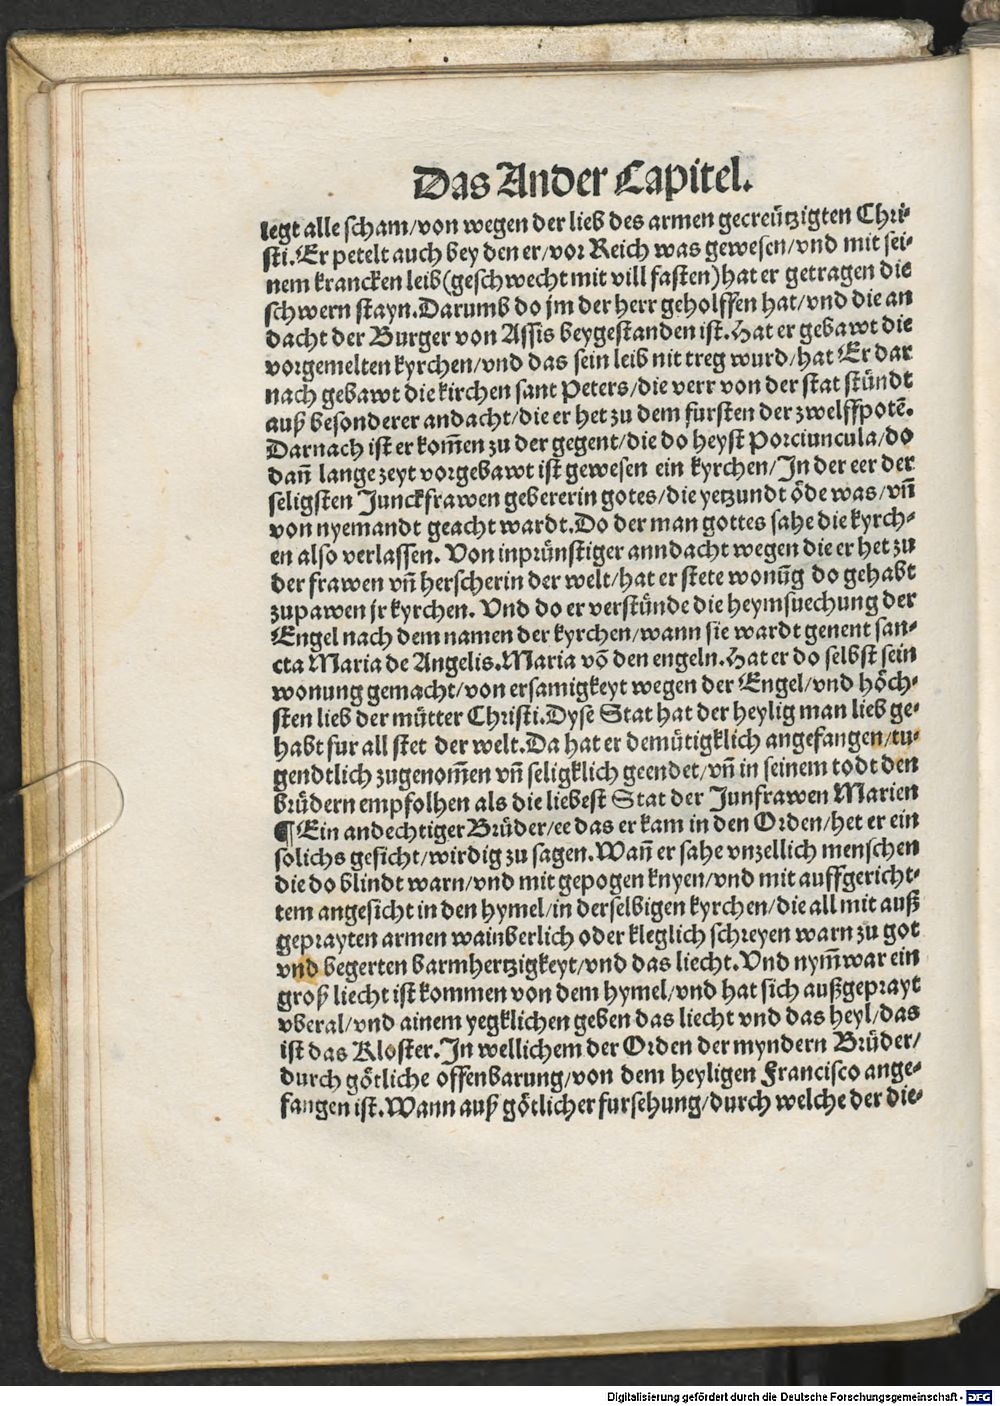 Das Ander Capitel.
legt alle scham/von wegen der lieb des armen gecreützigten Chri-
sti. Er petelt auch bey den er/vor Reich was gewesen/vnd mit sei-
nem krancken leib (geschwecht mit vill fasten) hat er getragen die
schwern stayn. Darumb do jm der herr geholffen hat/vnd die an
dacht der Burger von Assis beygestanden ist. Hat er gebawt die
vorgemelten kyrchen/vnd das sein leib nit treg wurd/hat Er dar
nach gebawt die kirchen sant Peters/die verr von der stat stündt
auß besonderer andacht/die er het zu dem fursten der zwelffpotē.
Darnach ist er kom̄en zu der gegent/die do heyst Porciuncula/do
dan̄ lange zeyt vorgebawt ist gewesen ein kyrchen/In der eer der
seligsten Junckfrawen gebererin gotes/die yetzundt öde was/vn̄
von nyemandt geacht wardt. Do der man gottes sahe die kyrch-
en also verlassen. Von inprünstiger anndacht wegen die er het zu
der frawen vn̄ herscherin der welt/hat er stete wonūg do gehabt
zupawen jr kyrchen. Vnd do er verstünde die heymsuechung der
Engel nach dem namen der kyrchen/wann sie wardt genent san-
cta Maria de Angelis. Maria vō den engeln. Hat er do selbst sein
wonung gemacht/von ersamigkeyt wegen der Engel/vnd höch-
sten lieb der mütter Christi. Dyse Stat hat der heylig man lieb ge-
habt fur all stet der welt. Da hat er demütigklich angefangen/tu-
gendtlich zugenom̄en vn̄ seligklich geendet/vn̄ in seinem todt den
brüdern empfolhen als die liebest Stat der Junfrawen Marien
¶ Ein andechtiger Brüder/ee das er kam in den Orden/het er ein
solichs gesicht/wirdig zu sagen. Wan̄ er sahe vnzellich menschen
die do blindt warn/vnd mit gepogen knyen/vnd mit auffgericht-
tem angesicht in den hymel/in derselbigen kyrchen/die all mit auß
geprayten armen wainberlich oder kleglich schreyen warn zu got
vnd begerten barmhertzigkeyt/vnd das liecht. Vnd nym̄ war ein
groß liecht ist kommen von dem hymel/vnd hat sich außgeprayt
vberal/vnd ainem yegklichen geben das liecht vnd das heyl/das
ist das Kloster. In wellichem der Orden der myndern Brüder/
durch götliche offenbarung/von dem heyligen Francisco ange-
fangen ist. Wann auß götlicher fursehung/durch welche der die-
Digitalisierung gefördert durch die Deutsche Forschungsgemeinschaft - DFG